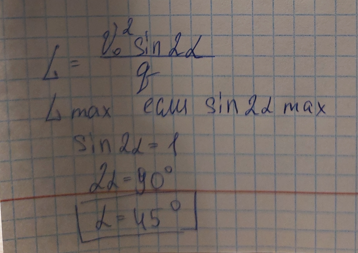 L = V₀² sin2α / g
L max если sin2α max
sin2α = 1
2α = 90°
α = 45°